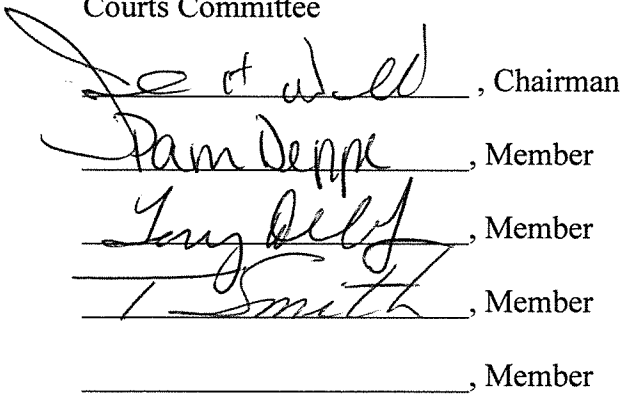 Courts Committee
, Chairman
Pam Deppe, Member
Tony, Member
T Smith, Member
, Member